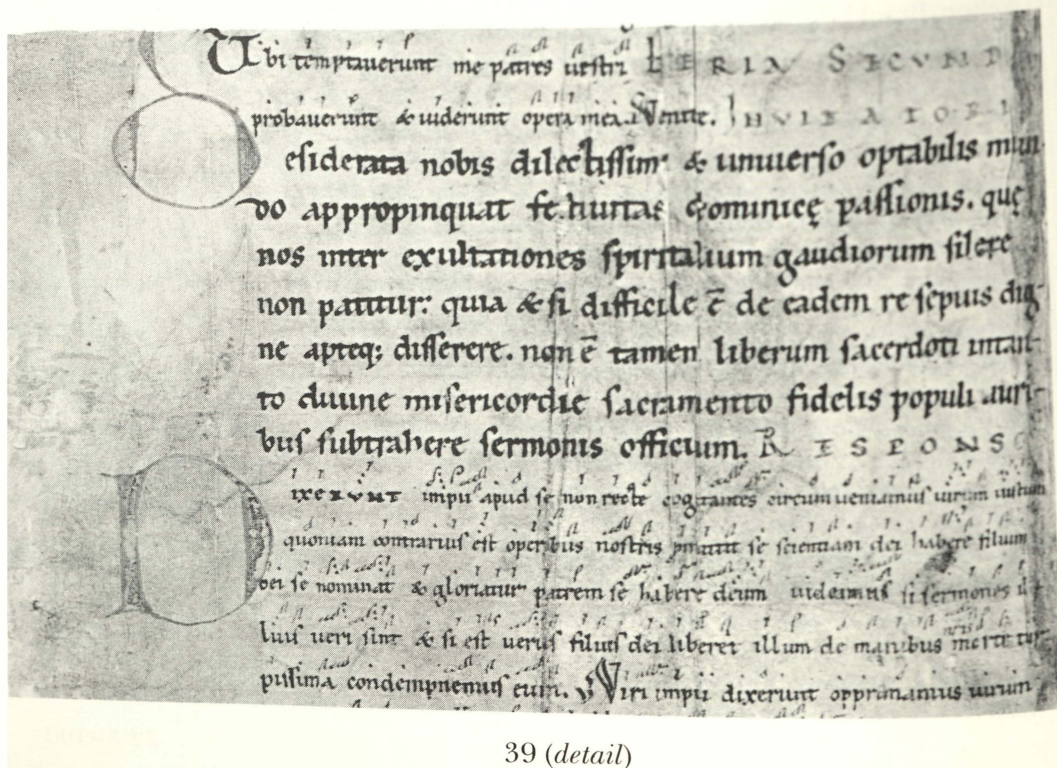 Ubi temptauerunt me patres uestri FERIA SECVND
probauerunt & uiderunt opera mea. Venite. INVITATORI
esiderata nobis dilectissimi & uniuerso optabilis mun-
do appropinquat festiuitas dominicę passionis. quę
nos inter exultationes spiritalium gaudiorum silere
non patitur: quia & si difficile ē de eadem re sepius dig-
ne apteq; disserere. non ē tamen liberum sacerdoti in tan-
to diuine misericordie sacramento fidelis populi auri-
bus subtrahere sermonis officium. RESPONS
DIXERVNT impii apud se non recte cogitantes circumueniamus uirum iustum
quoniam contrarius est operibus nostris promittit se scientiam dei habere filium
dei se nominat & gloriatur patrem se habere deum uideamus si sermones il-
lius ueri sint & si est uerus filius dei liberet illum de manibus morte tur-
pissima condempnemus eum. V Viri impii dixerunt opprimamus uirum
39 (detail)